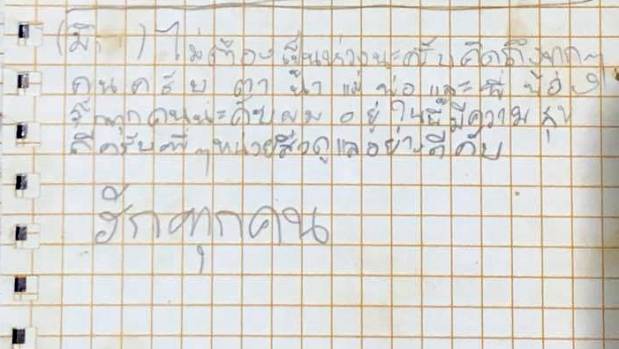 ไม่ต้องเป็นห่วงนะครับคิดถึงทุกๆ
คนครับ ตา น้า แม่ พ่อ และ พี่ น้อง
รักทุกคนนะคับผม อยู่ในนี้มีความสุข
ดีครับพี่ๆหน่วยซีวดูแลอย่างดีคับ
รักทุกคน